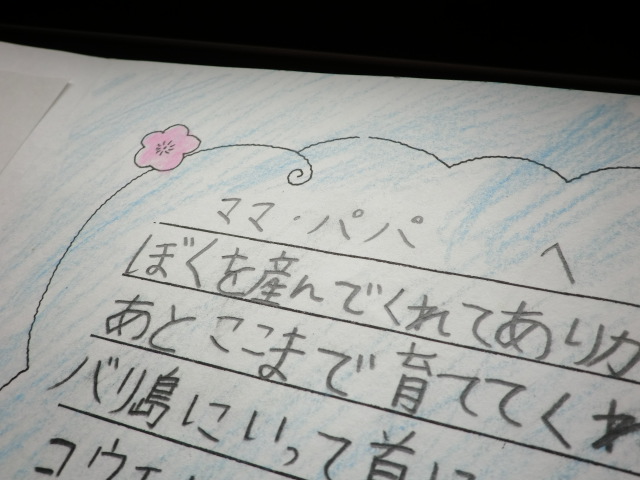 ママ・パパ へ
ぼくを産んでくれてありが
あとここまで育ててくれ
バリ島にいって首に
コウモ